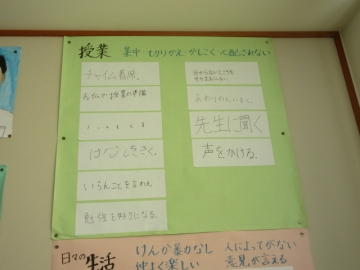 授業 集中 切りかえ かしこく 心配されない
チャイム着席。
次の授業の準備
はなしをきく。
いらんことを言わん
勉強を好きになる。
分からないところを
そのままにしない
先生に聞く
声をかける。
日々の生活 けんか暴力なし 人によってがない
仲よく楽しい 意見が言える